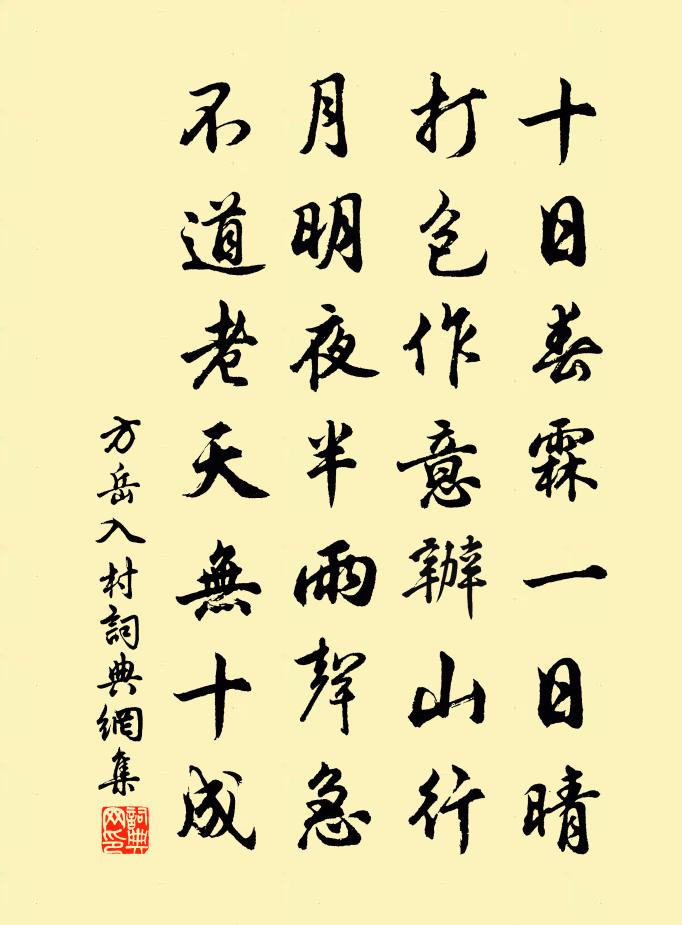 十日春霖一日晴
打包作意辦山行
月明夜半雨聲急
不道老天無十成
方岳入村詞典網集
詞典网印